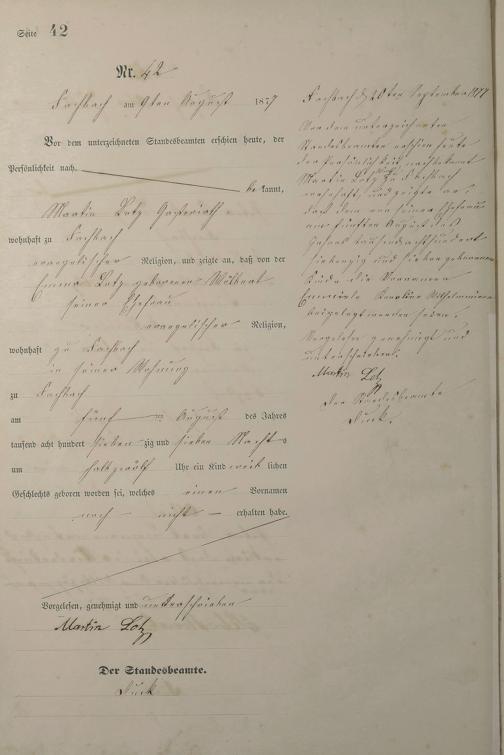 Seite 42
Nr. 42
Fachbach am 9ten August 1877
Vor dem unterzeichneten Standesbeamten erschien heute, der
Persönlichkeit nach
be kannt,
Martin Lotz
wohnhaft zu Fachbach
evangelischer Religion, und zeigte an, daß von der
Emma Lotz geborenen
seiner Ehefrau
evangelischer Religion,
wohnhaft zu Fachbach
in seiner Wohnung
zu Fachbach
am fünf ten August des Jahres
tausend acht hundert sieben zig und sieben Nachts
um halbzwölf Uhr ein Kind weib lichen
Geschlechts geboren worden sei, welches einen Vornamen
noch nicht erhalten habe.
Vorgelesen, genehmigt und unterschrieben
Martin Lotz
Der Standesbeamte.
Fachbach d 20ten September 1877
Vor dem unterzeichneten
Standesbeamten erschien heute
der Persönlichkeit nach bekannt
Martin Lotz zu Fachbach
wohnhaft, und zeigte an,
daß dem von seiner Ehefrau
am fünften August des
Jahres tausendachthundert
siebenzig und sieben geborenen
Kinde die Vornamen
Karoline Wilhelmine
beigelegt worden seien.
Vorgelesen genehmigt und
unterschrieben.
Martin Lotz
Der Standesbeamte